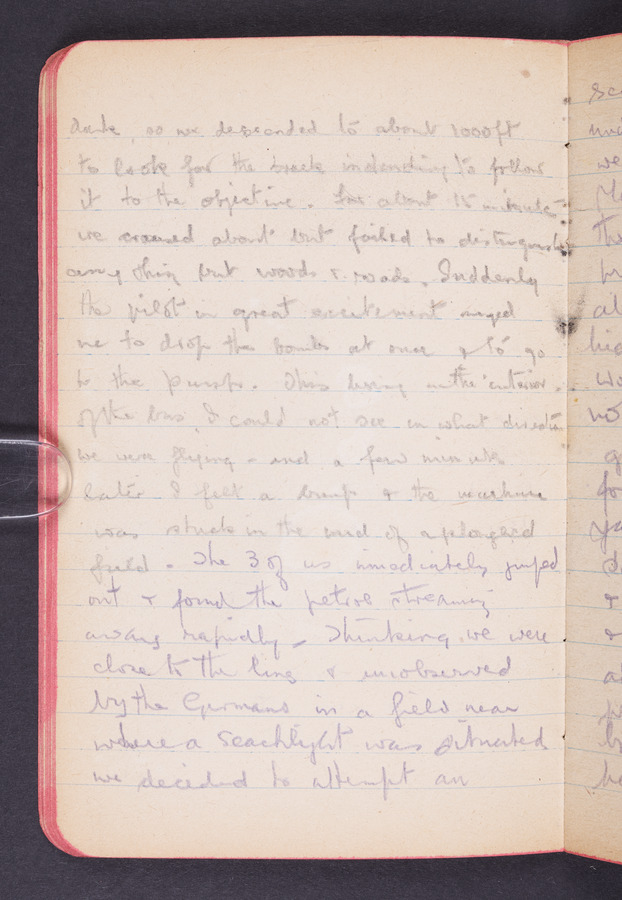 dark, so we descended to about 1000ft
to look for the track indending to follow
it to the objective. For about 15 minutes
we crawsed about but failed to distinguish
any thing but woods & roads. Suddenly
the pilot in great excitement urged
me to drop the bombs at once & to go
to the pumps. This being in the interior
of the bus I could not see in what direction
we were flying - and a few minutes
later I felt a bump & the machine
was stuck in the mud of a ploughed
field. The 3 of us immediately jumped
out & found the petrol streaming
away rapidly - Thinking we were
close to the line & unobserved
by the Germans in a field near
where a seachlight was situated
we decided to attempt an